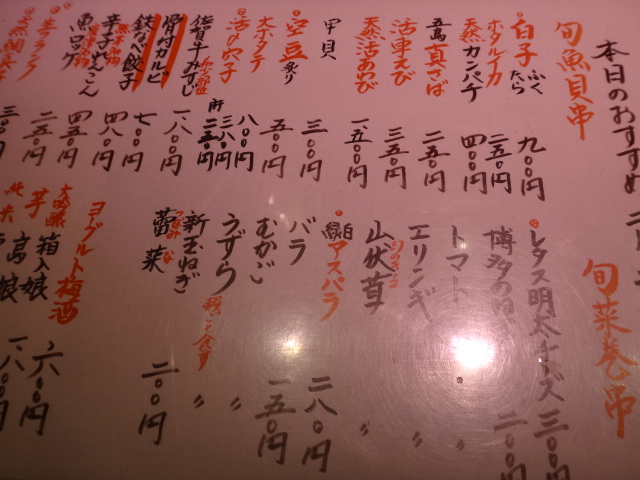 本日のおすすめ
旬魚貝串
白子 ふぐ たら 九〇〇円
ホタルイカ 二五〇円
天然カンパチ 四〇〇円
五島真さば 二五〇円
活車えび 三五〇円
天然活あわび 一、五〇〇円
甲貝 三〇〇円
空豆 炙り
大ホタテ 五〇〇円
活〆穴子 八〇〇円
三八〇円
佐賀牛みすじ 二五〇円
骨付カルビ 一、八〇〇円
鉄なべ餃子 七〇〇円
辛子れんこん 四八〇円
魚ロッケ 四五〇円
二五〇円
三〇〇円
旬菜巻串
レタス明太チーズ 三〇〇円
博多 二〇〇円
トマト 〃
エリンギ 〃
山伏茸 〃
白 緑 アスパラ 二八〇円
バラ 一五〇円
むかご 〃
うずら 〃
新玉ねぎ
蕾菜 つぼみな 二〇〇円
ヨーグルト梅酒
大吟醸
芋 箱入娘 六〇〇円
純米 八〇〇円